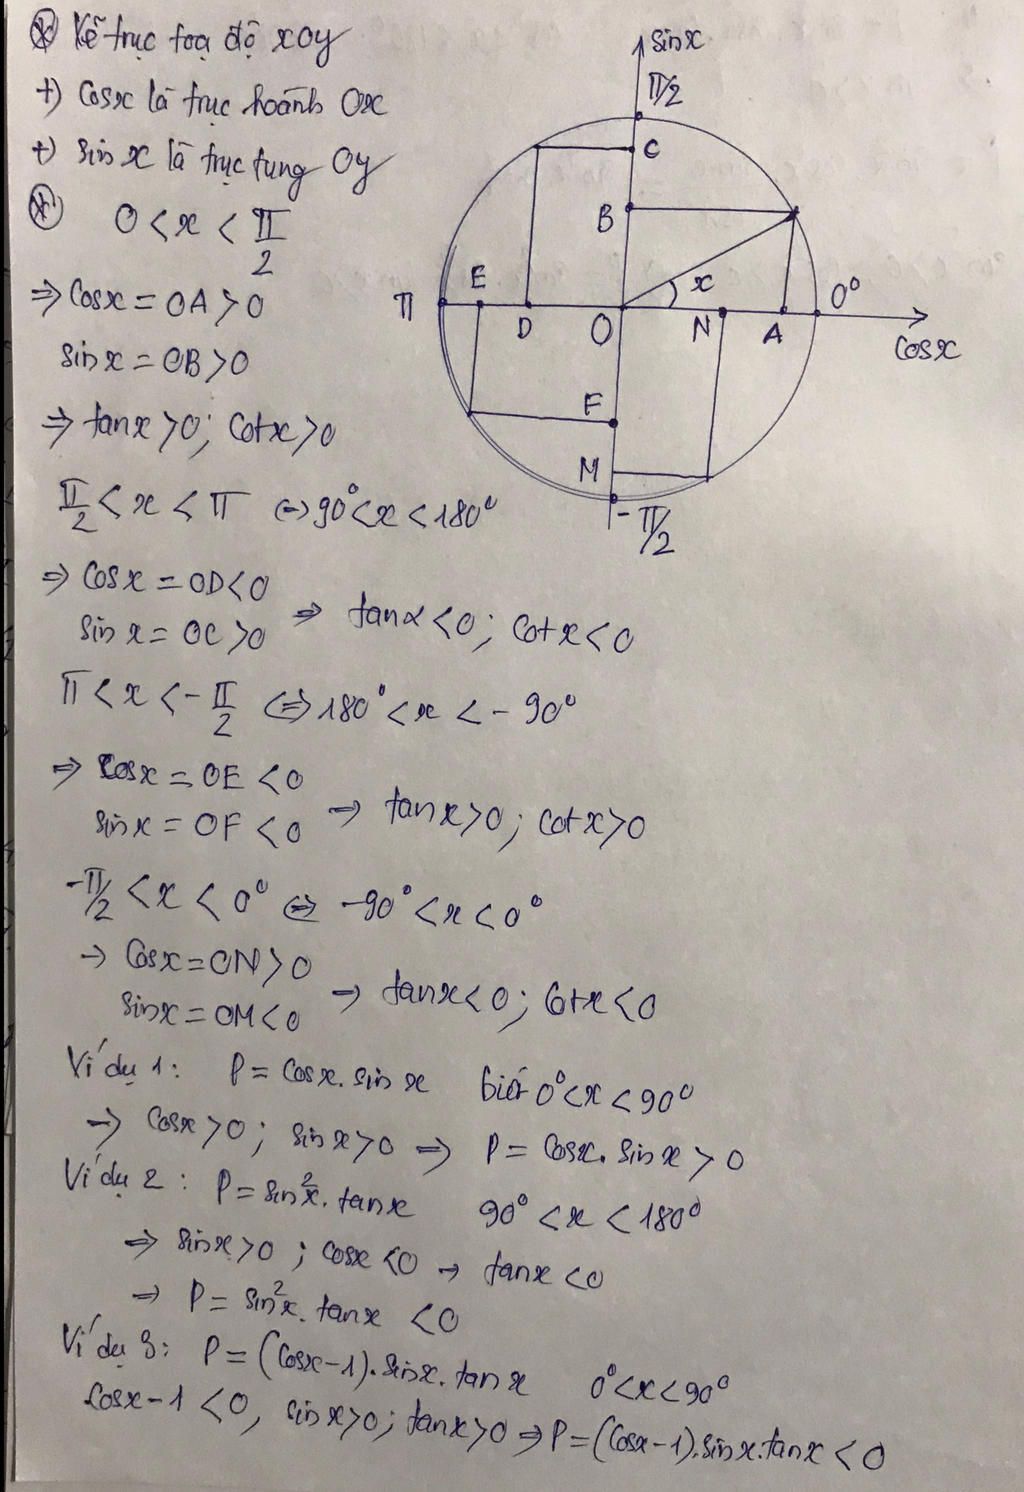 ⊛ Kẽ trục toạ độ xOy
+) Cosx là trục hoành Ox
+) Sin x là trục tung Oy
⊛ 0 < x < π/2
⇒ Cosx = OA > 0
Sin x = OB > 0
⇒ tanx > 0 ; Cotx > 0
π/2 < x < π ⇔ 90° < x < 180°
⇒ Cosx = OD < 0
Sin x = OC > 0 ⇒ tanx < 0 ; Cotx < 0
π < x < -π/2 ⇔ 180° < x < - 90°
⇒ Cosx = OE < 0
Sinx = OF < 0 → tanx > 0 ; Cotx > 0
-π/2 < x < 0° ⇔ -90° < x < 0°
→ Cosx = ON > 0
Sinx = OM < 0 → tanx < 0 ; Cotx < 0
Ví dụ 1 : P = Cosx. Sin x biết 0° < x < 90°
→ Cosx > 0 ; Sin x > 0 ⇒ P = Cosx. Sin x > 0
Ví dụ 2 : P = Sin²x. tanx 90° < x < 180°
⇒ Sinx > 0 ; Cosx < 0 → tanx < 0
→ P = Sin²x. tanx < 0
Ví dụ 3 : P = (Cosx - 1). Sinx. tanx 0° < x < 90°
Cosx - 1 < 0, Sin x > 0 ; tanx > 0 ⇒ P = (Cosx - 1). Sinx. tanx < 0
Sinx
π/2
C
B
x
π
E
D
O
N
A
0°
Cosx
F
M
-π/2